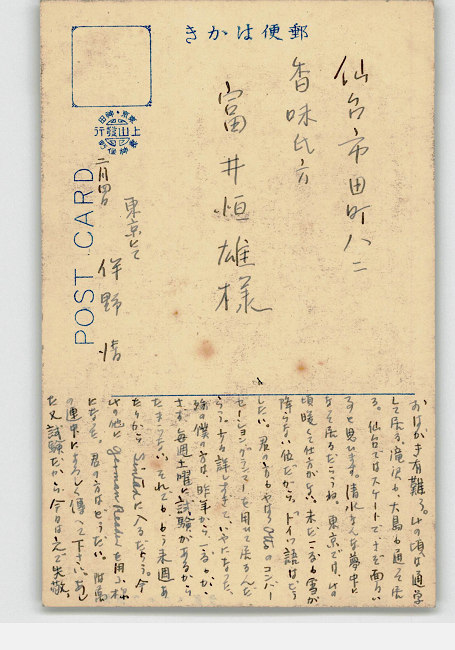 郵便はかき
仙台市田町八二
香味氏方
富井恒雄様
二月四日
東京にて
伴野 清
POST CARD
おはがき有難う。此の頃は通学
して居る。滝沢も、大島も通って居
る。仙台ではスケートでさぞ面白い
ことと思います。清水なんな夢中に
なって居るだろうね。東京では此の
頃暖くて仕方がない。未だ一度も雪が
降らない位だから。ドイツ語はどう
したい。君の方もやはりOttoのコンバー
セーショングランマーを用いて居るんだ
らう。少し詳しすぎて、いやになった。
僕の方は昨年から
さず毎週土曜に試験があるから
たまらない。それでももう来週あ
たりから に入るだらう。今
は此の他に German Reader を用
になった。君の方はどうだい。
の連中によろしく傳へて下さい。あし
た又試験だから今日はこれで失敬。